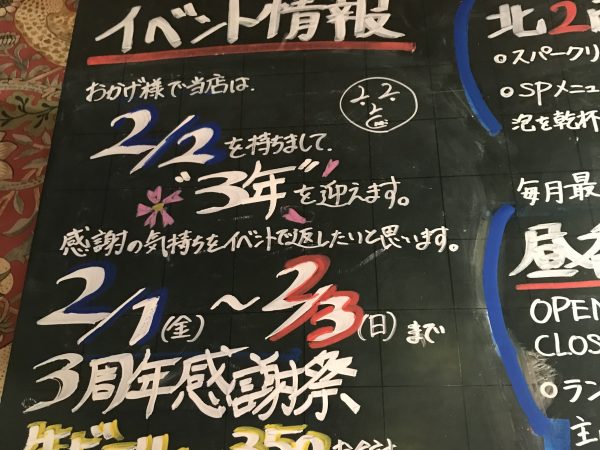 イベント情報
おかげ様で当店は、
2/2を持ちまして、
"3年"を迎えます。
感謝の気持ちをイベントで返したいと思います。
2/1(金)～2/3(日)まで
3周年感謝祭
生ビール
350
北2
●スパークリ
●SPメニュ
泡を乾杯
毎月最
昼
OPEN
CLOS
●ラン
主